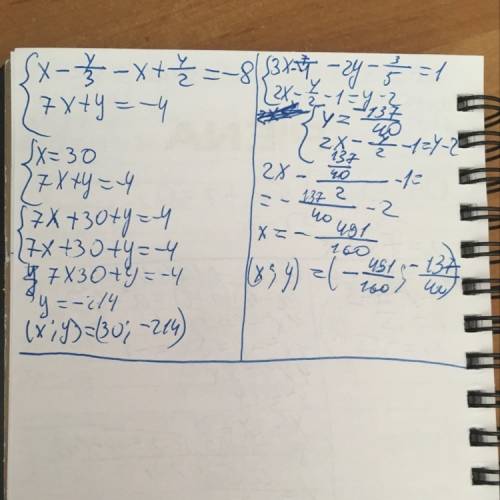 x - y/3 - x + y/2 = -8
7x + y = -4
x = 30
7x + y = -4
7x + 30 + y = -4
7x + 30 + y = -4
7x30 + y = -4
y = -214
(x; y) = (30; -214)
3x - 7/4 - 2y - 3/5 = 1
2x - y/2 - 1 = y - 2
y = 137/40
2x - y/2 - 1 = y - 2
2x - 137/40 - 1 =
= - 137/40 2 - 2
x = - 491/160
(x; y) = (- 491/160; - 137/40)